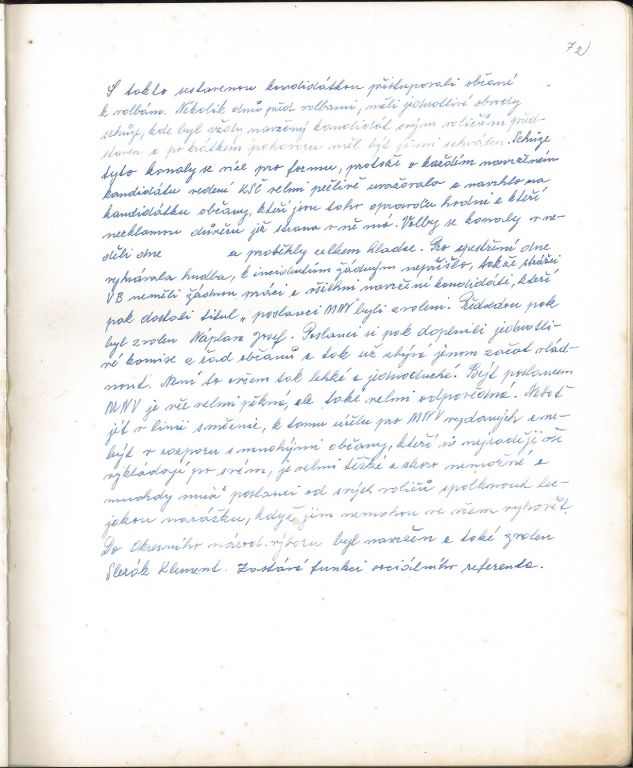 72)
S takto sestavenou kandidátkou přistupovali občané
k volbám. Několik dnů před volbami, měli jednotlivé obvody
schůze, kde byl vždy navržený kandidát svým voličům před-
staven a po krátkém pohovoru měl být jimi schválen. Schůze
tyto konaly se více pro formu, protože o každém navrženém
kandidátu vedení KSČ velmi pečlivě uvažovalo a navrhlo na
kandidátku občany, kteří jsou toho opravdu hodni a kteří
nezklamou důvěru již strana v ně má. Volby se konaly v ne-
děli dne a proběhly celkem hladce. Pro zpestření dne
vyhrávala hudba, k incidentům žádným nepřišlo, takže strážci
VB neměli žádnou práci a všichni navržení kandidáti, kteří
pak dostali titul „poslanci MNV" byli zvoleni. Předsedou pak
byl zvolen Náplava Josef. Poslanci si pak doplnili jednotli-
vé komise z řad občanů a tak už zbývá jenom začat vlád-
nout. Není to ovšem tak lehké a jednoduché. Být poslancem
MNV je věc velmi pěkná, ale také velmi odpovědná. Neboť
jít v linii směrnic, k tomu účelu pro MNV vydaných a ne-
být v rozporu s mnohými občany, kteří si nejraději vše
vykládají po svém, je velmi těžké a skoro nemožné a
mnohdy musí poslanci od svých voličů spolknout lec-
jakou narážku, když jim nemohou ve všem vyhovět.
Do Okresního národ. výboru byl navržen a také zvolen
Slezák Klement. Zastává funkci sociálního referenta.